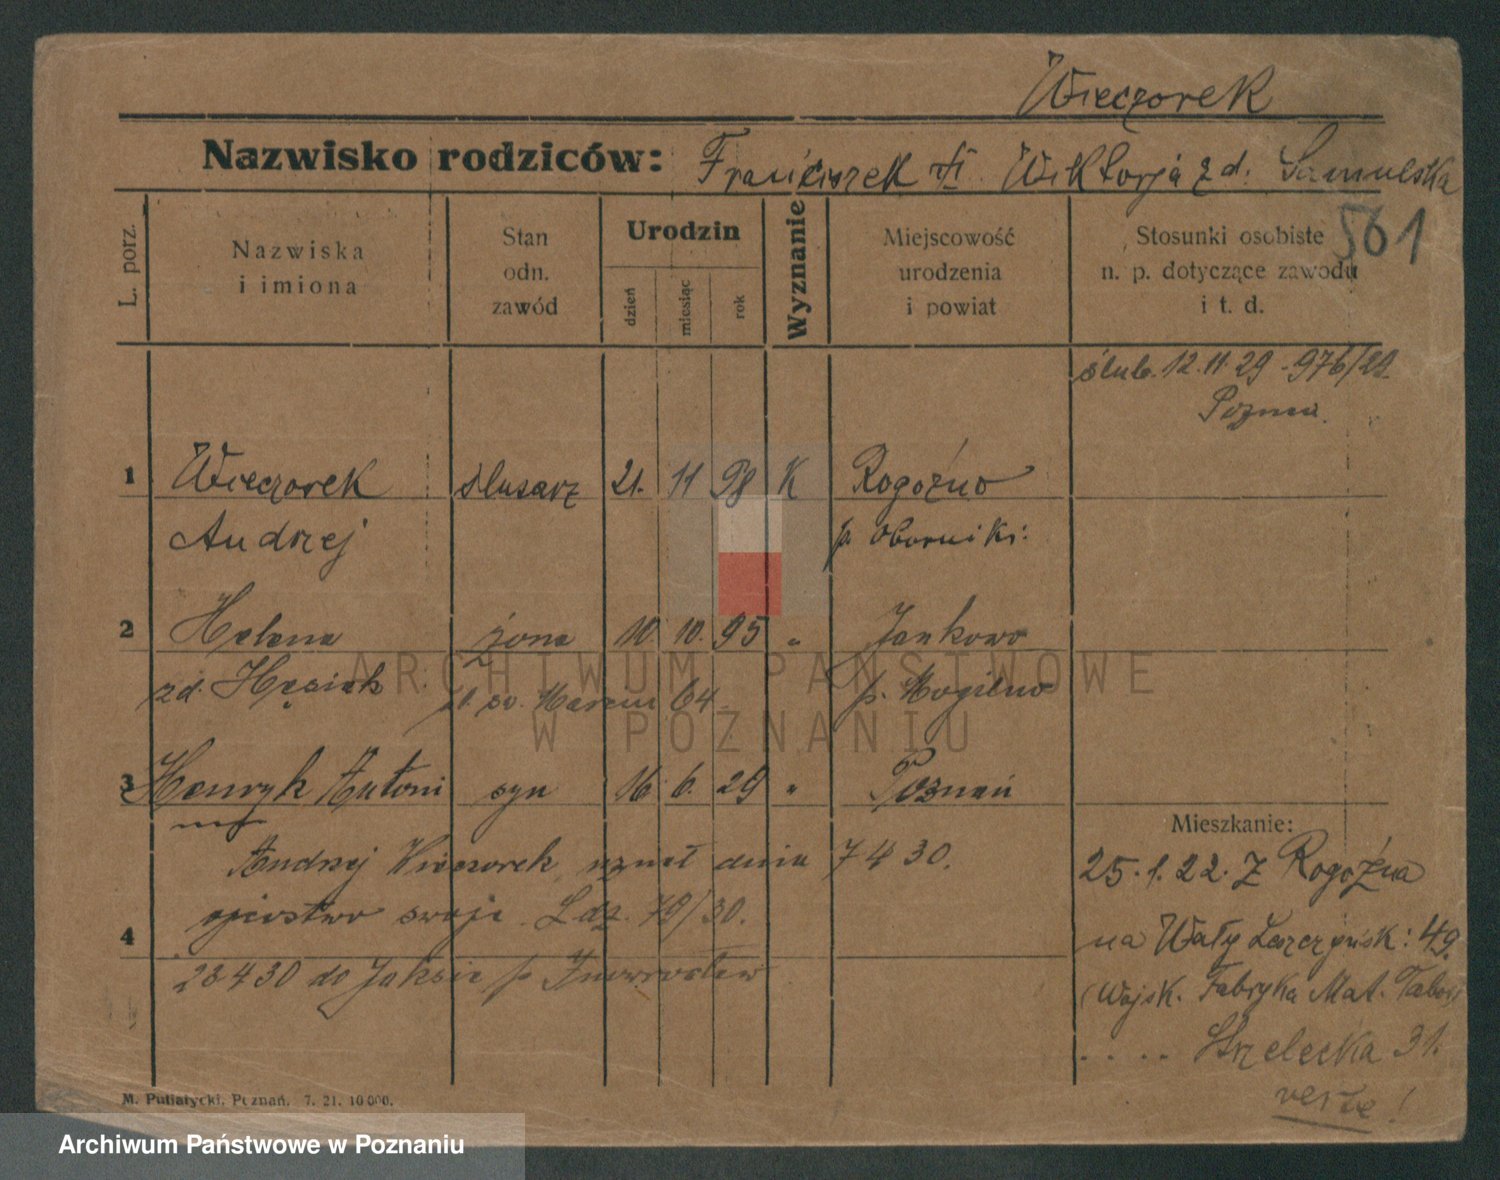 Wieczorek
Nazwisko rodziców: Franciszek Wiktorja z d. Samulska
561
L. porz.
Nazwiska i imiona
Stan odn. zawód
Urodzin
dzień miesiąc rok
Wyznanie
Miejscowość urodzenia i powiat
Stosunki osobiste n. p. dotyczące zawodu i t. d.
ślub. 12.11.29 - 976/29
Poznań.
1 Wieczorek ślusarz 21. 11 98 K Rogoźno
Andrzej p. Oborniki
2 Helena żona 10. 10. 95 " Jankowo
zd. Hęsiak św. Marcin 64 p. Mogilno
3 Henryk Antoni syn 16. 6. 29 " Poznań
Andrzej Wieczorek uznał dnia 7 4 30.
ojcostwo swoje. Ldz. 79/30.
4
23 4 30 do Jaksic p. Inowrocław
Mieszkanie:
25. 1. 22. Z Rogoźna
na Wały Leszczyńsk: 49.
(Wojsk. Fabryka Mat. Tabor)
.... Strzelecka 31.
verte!
M. Putiatycki, Poznań. 7. 21. 10 000.
ARCHIWUM PAŃSTWOWE
W POZNANIU
Archiwum Państwowe w Poznaniu